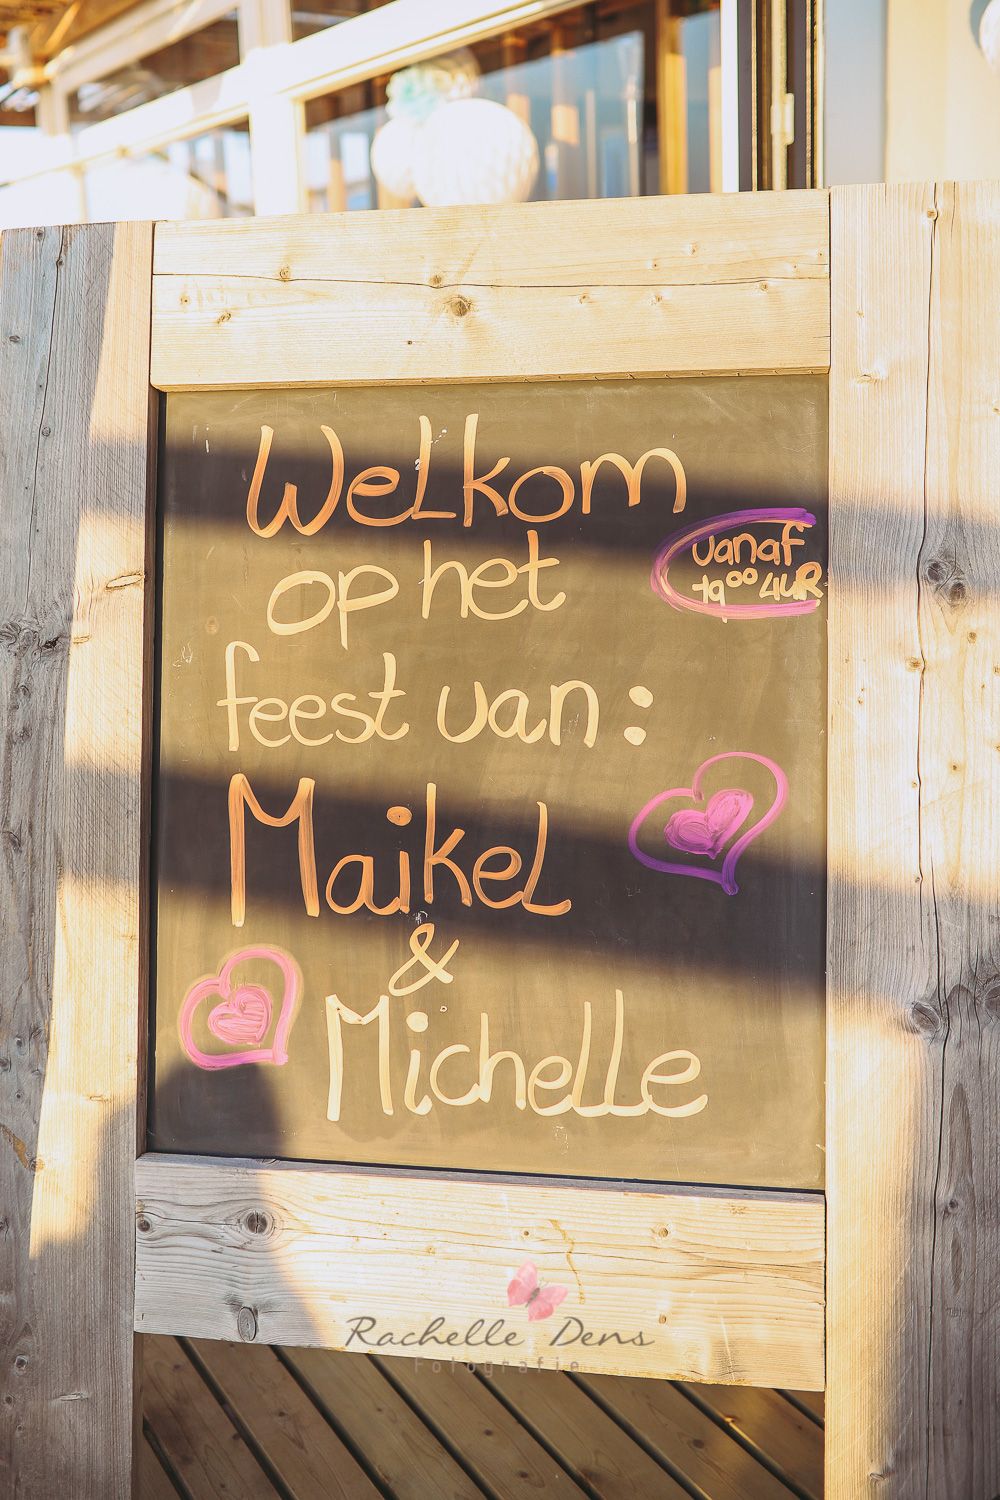 Welkom
op het
vanaf
19⁰⁰ uuR
feest van:
Maikel
&
Michelle
Rachelle Dens
Fotografie